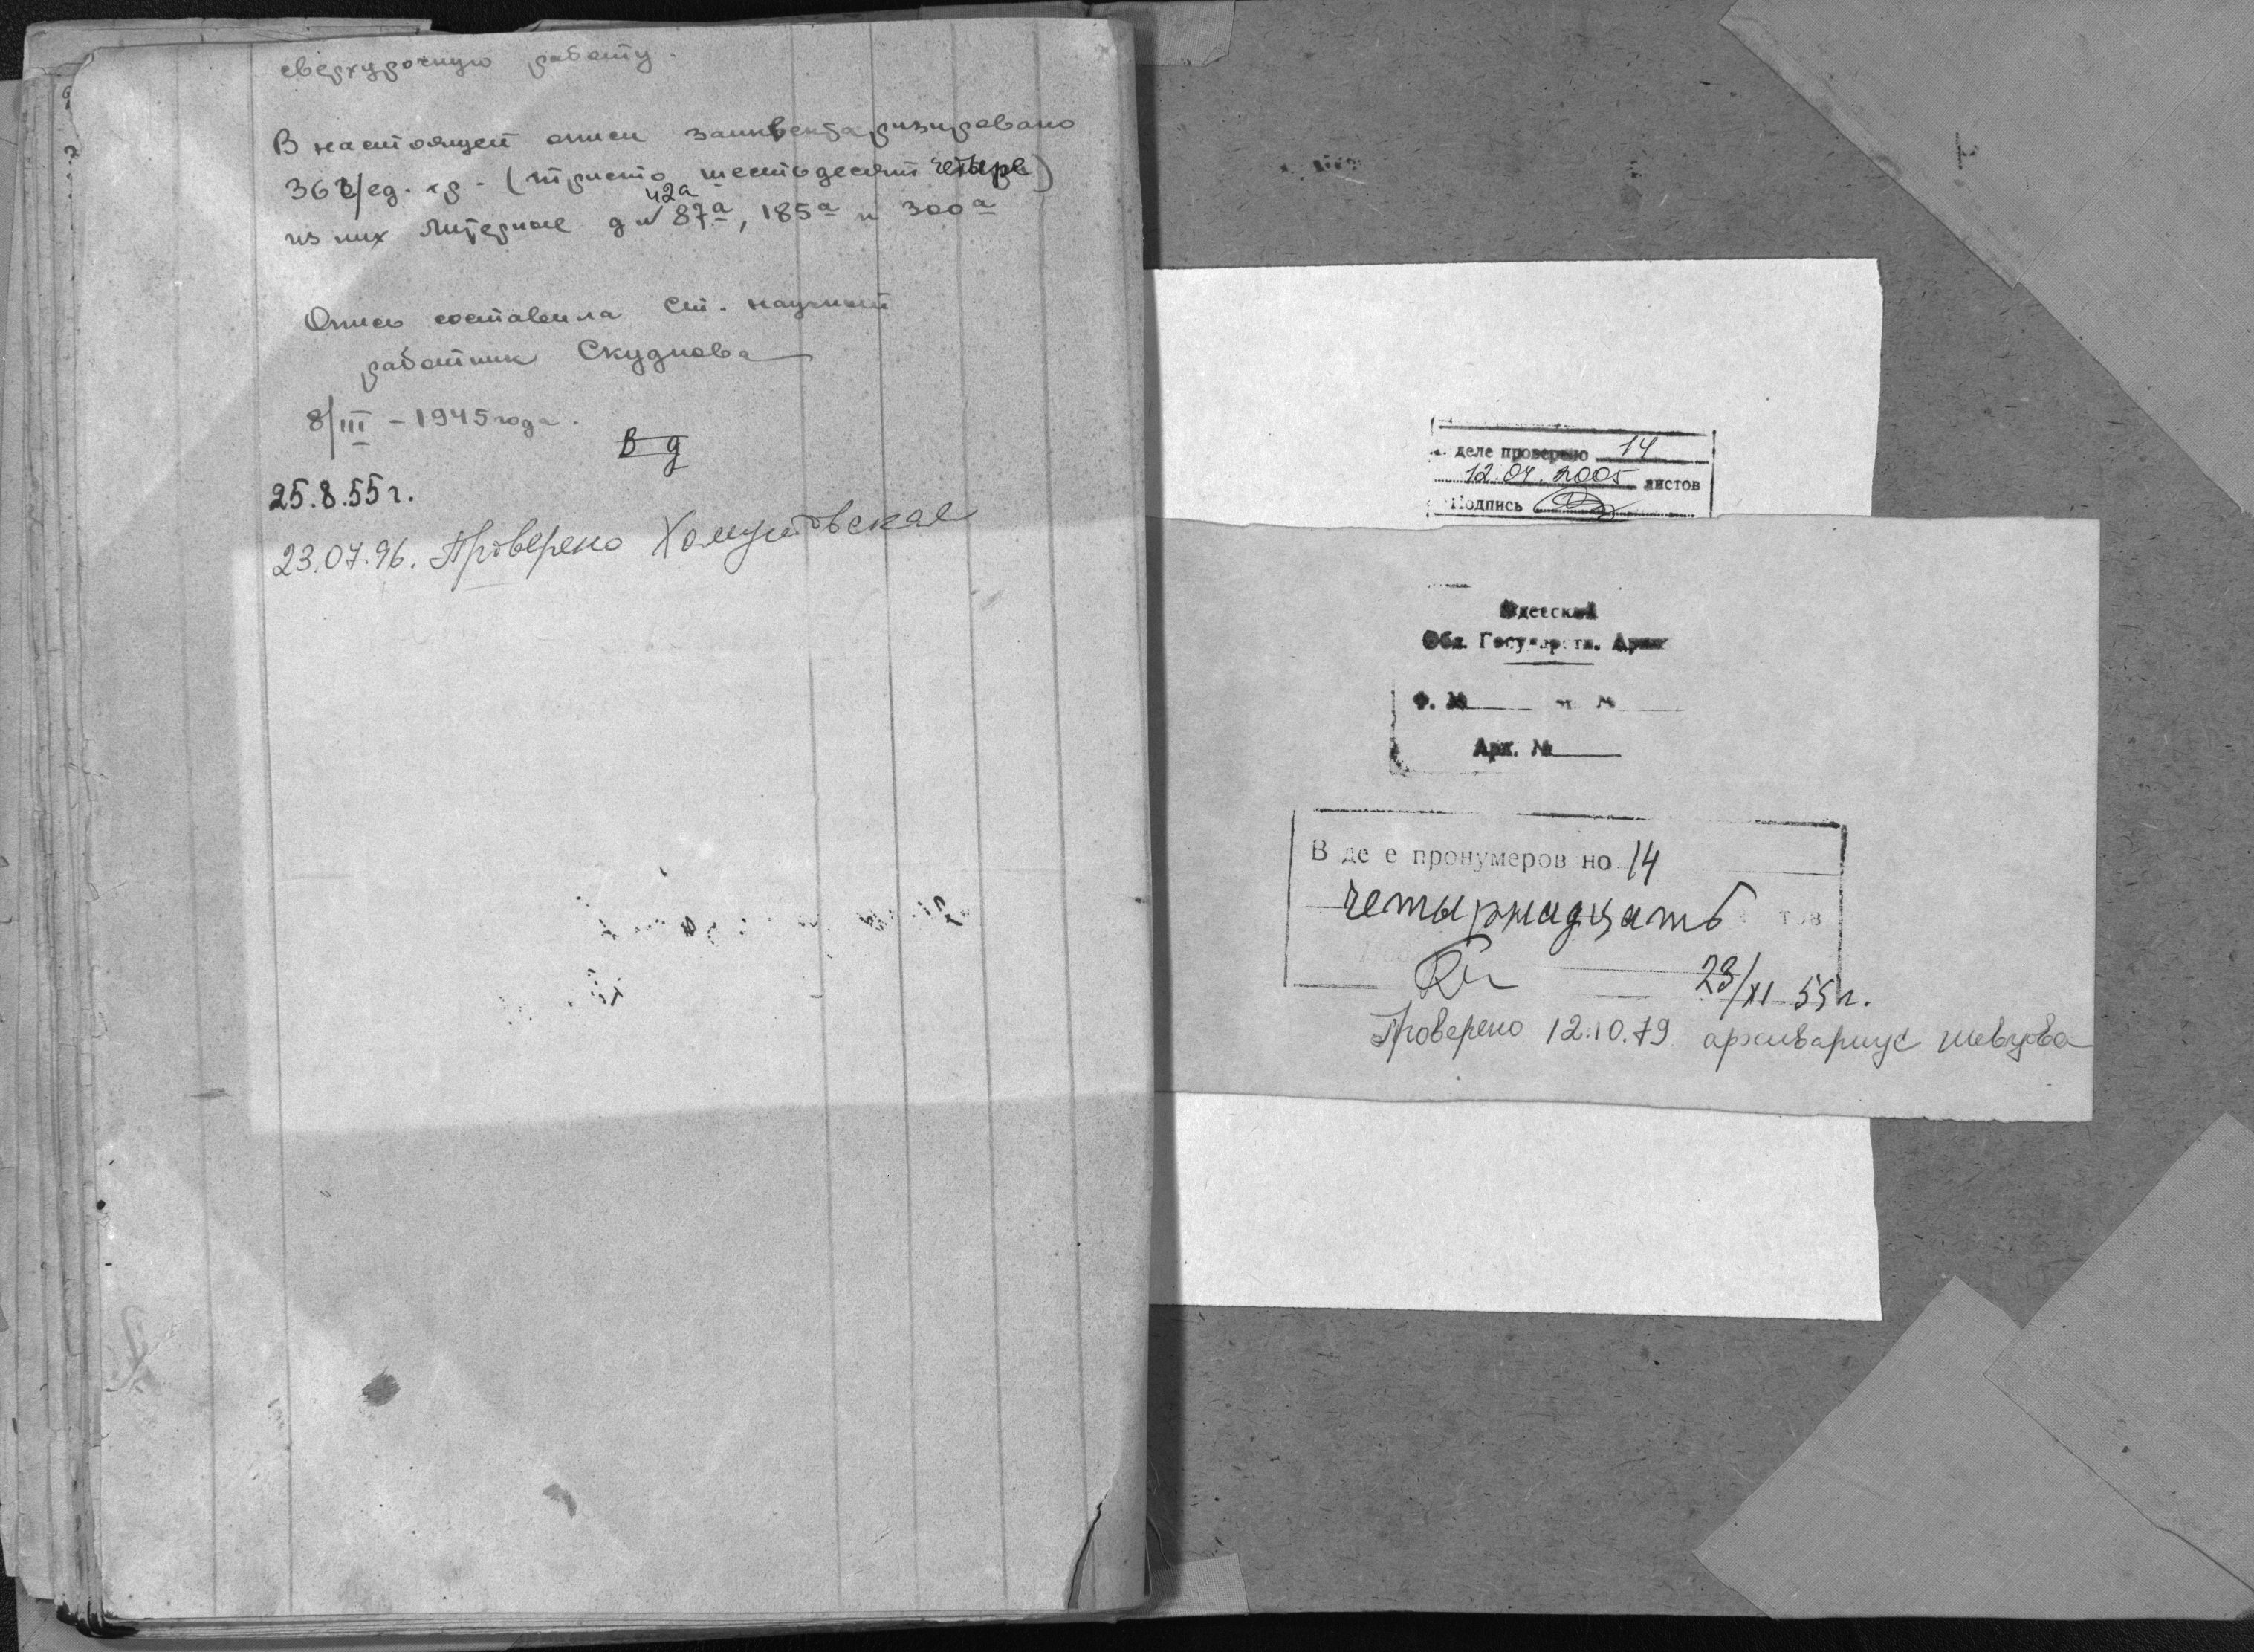 сверхурочную работу.
В настоящей описи заинвентаризировано
364/ед. хр. - (триста шестьдесят четыре)
42а
из них литерные д. № 87а, 185а и 300а
Опись составила Ст. научный
работник Скуднова
8/III - 1945 года.
25.8.55 г.
23.07.96. Проверено Хомутовская
деле проверено 14
12.04.2005 листов
Подпись
Одесский
Обл. Государств. Архив
Ф. № №
Арх. №
В де е пронумеров но 14
четырнадцать тов
23/XI 55 г.
Проверено 12.10.79 архивариус Шевцова